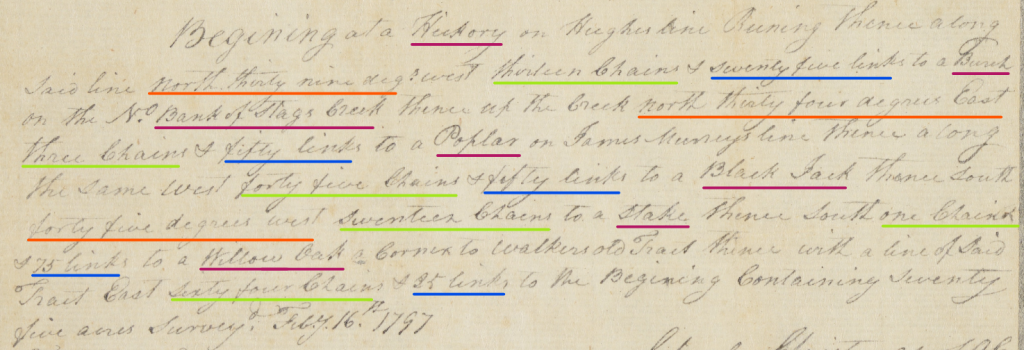 Begining at a Hickory on Hughes line Runing thence along
Said line north thirty nine degs west thirteen Chains & seventy five links to a Burch
on the No. Bank of Stags Creek thence up the Creek north thirty four degrees East
three Chains & fifty links to a Poplar on James Murreys line thence along
the same west forty five Chains & fifty links to a Black Jack thence South
forty five degrees west seventeen Chains to a Stake thence South one Chain
& 75 links to a Willow Oak a Corner to Walkers old Tract thence with a line of Said
Tract East sixty four Chains & 25 links to the Begining Containing Seventy
five acres Surveyd. Feby. 16th 1797